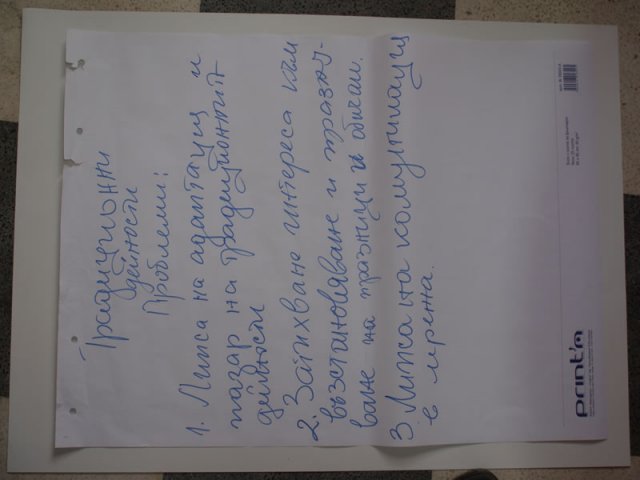 Традиционни
дейности
Проблеми:
1. Липса на адаптация и
пазар на традиционнит
дейности
2. Затихване интереса към
възстановяване и празну-
ване на празници и обичаи.
3. Липса на комуникация
в мрежа.
print'm